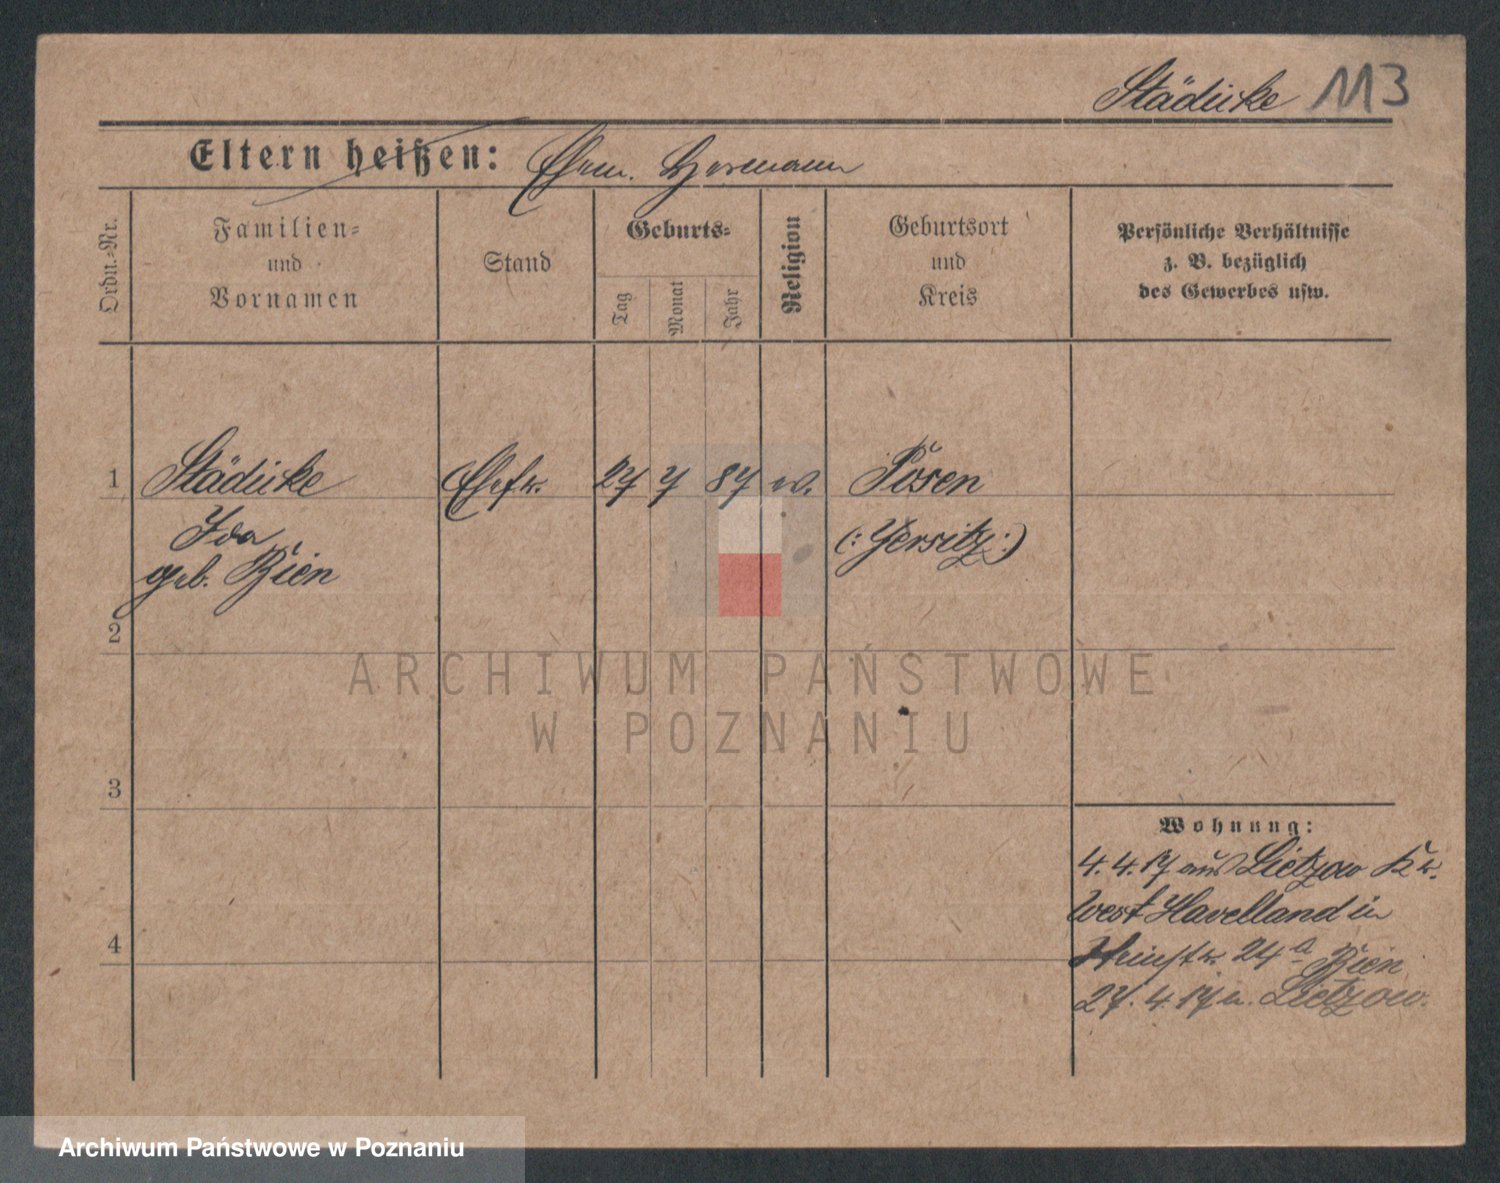 Städicke 113
Eltern heißen: Ehem. Hermann
Ordn.-Nr.
Familien-
und
Vornamen
Stand
Geburts-
Tag
Monat
Jahr
Religion
Geburtsort
und
Kreis
Persönliche Verhältnisse
z. B. bezüglich
des Gewerbes usw.
1 Städicke Ehefr. 27 7 87 ev. Posen
Ida (: Jersitz :)
geb. Bien
2
3
4
Wohnung:
4.4.17 aus Lietzow Kr.
West Havelland in
24a Bien
27.4.17 n. Lietzow.
ARCHIWUM PAŃSTWOWE
W POZNANIU
Archiwum Państwowe w Poznaniu